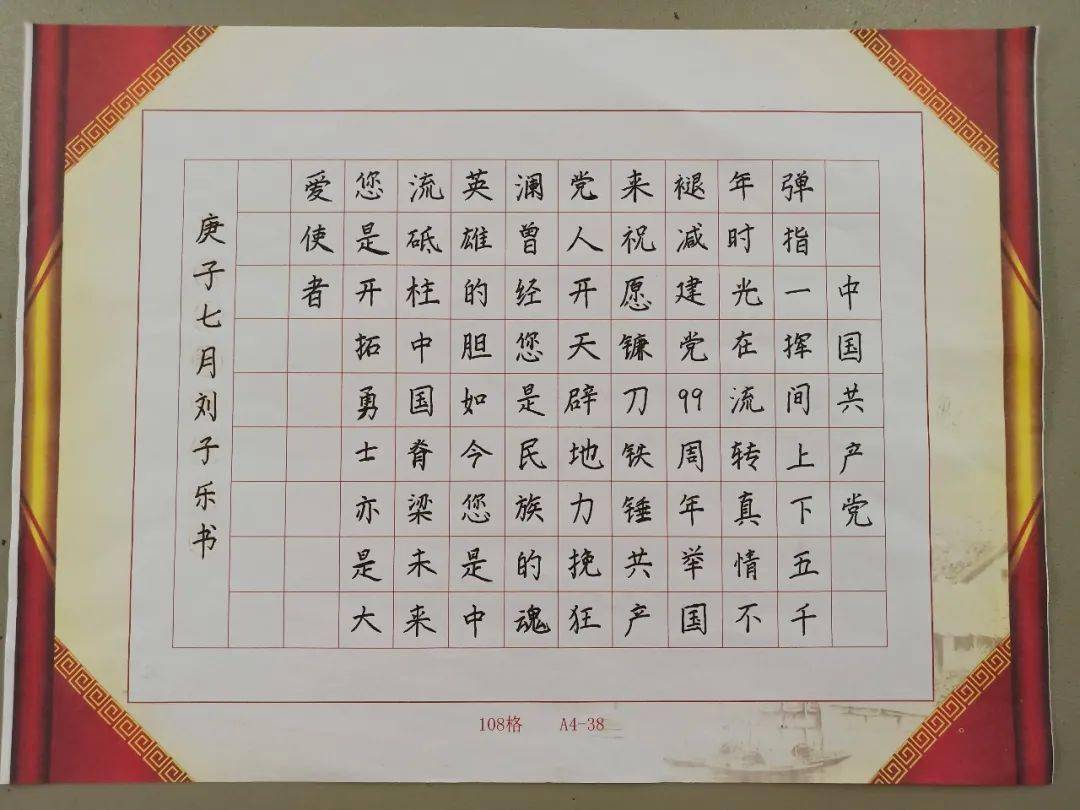 中国共产党
弹指一挥间上下五千
年时光在流转真情不
褪减建党99周年举国
来祝愿镰刀铁锤共产
党人开天辟地力挽狂
澜曾经您是民族的魂
英雄的胆如今您是中
流砥柱中国脊梁未来
您是开拓勇士亦是大
爱使者
庚子七月刘子乐书
108格 A4-38